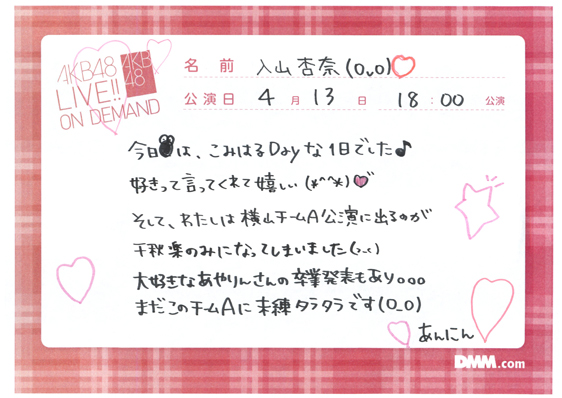 AKB48
LIVE!!
ON DEMAND
AKB
48
名前 入山杏奈(0ᴗ0)
公演日 4月13日 18:00 公演
今日は、こみはるDayな1日でした♪
好きって言ってくれて嬉しい(*^^*)
そして、わたしは横山チームA公演に出るのが
千秋楽のみになってしまいました(>.<)
大好きなあやりんさんの卒業発表もあり。。。
まだこのチームAに未練タラタラです(0_0)
あんにん
DMM.com